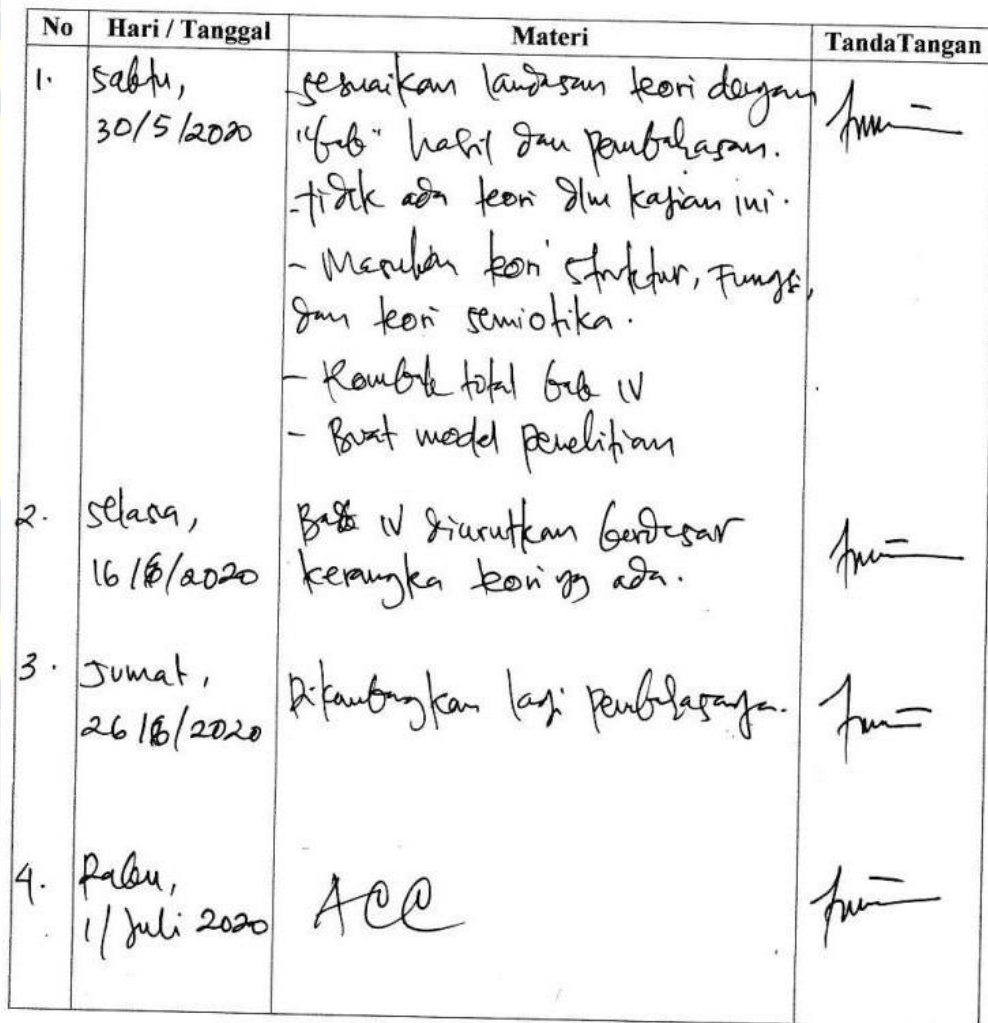 No Hari / Tanggal Materi TandaTangan
1. Sabtu, - sesuaikan landasan teori dengan
30/5/2020 "bab" hasil dan pembahasan.
- tidak ada teori dlm kajian ini.
- Masukan teori struktur, Fungsi,
dan teori semiotika.
- Rombak total bab IV
- Buat model penelitian
2. Selasa, Bab IV diurutkan berdasar
16/6/2020 kerangka teori yg ada.
3. Jumat, Dikembangkan lagi pembahasanya.
26/6/2020
4. Rabu, ACC
1/Juli 2020